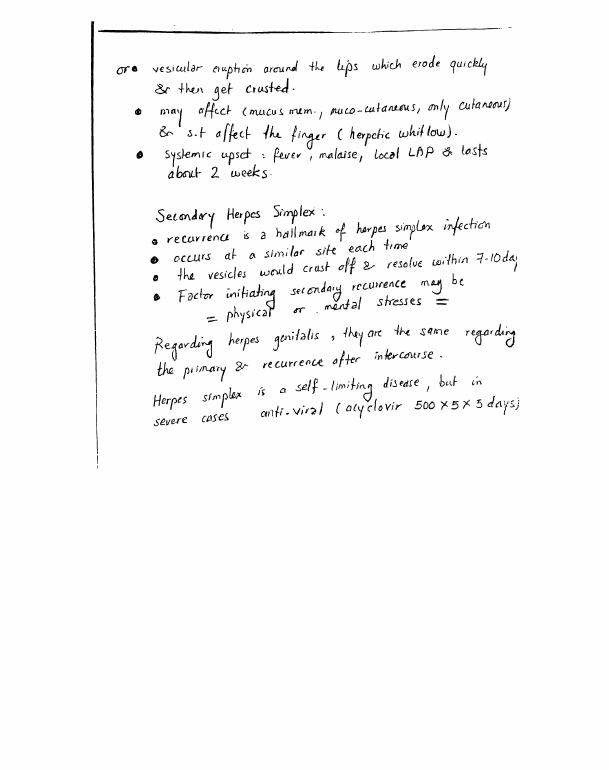 or • vesicular eruption around the lips which erode quickly
& then get crusted.
• may affect (mucus mem., muco-cutaneous, only cutaneous)
& s.t affect the finger (herpetic whitlow).
• systemic upset : fever, malaise, local LAP & lasts
about 2 weeks.
Secondary Herpes Simplex :
• recurrence is a hallmark of herpes simplex infection
• occurs at a similar site each time
• the vesicles would crust off & resolve within 7-10 day
• Factor initiating secondary recurrence may be
= physical or mental stresses =
Regarding herpes genitalis, they are the same regarding
the primary & recurrence after intercourse.
Herpes simplex is a self-limiting disease, but in
severe cases anti-viral (acyclovir 500 x 5 x 5 days)